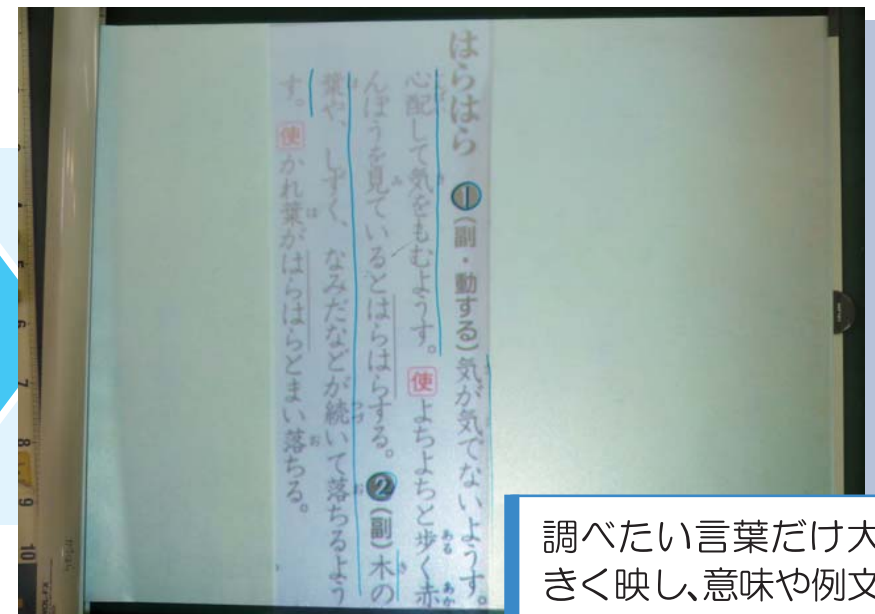 はらはら ❶(副・動する)気が気でないようす。
心配して気をもむようす。使よちよちと歩く赤
んぼうを見ているとはらはらする。❷(副)木の
葉や、しずく、なみだなどが続いて落ちるよう
す。使かれ葉がはらはらとまい落ちる。
6
7
8
9
10
調べたい言葉だけ大
きく映し、意味や例文